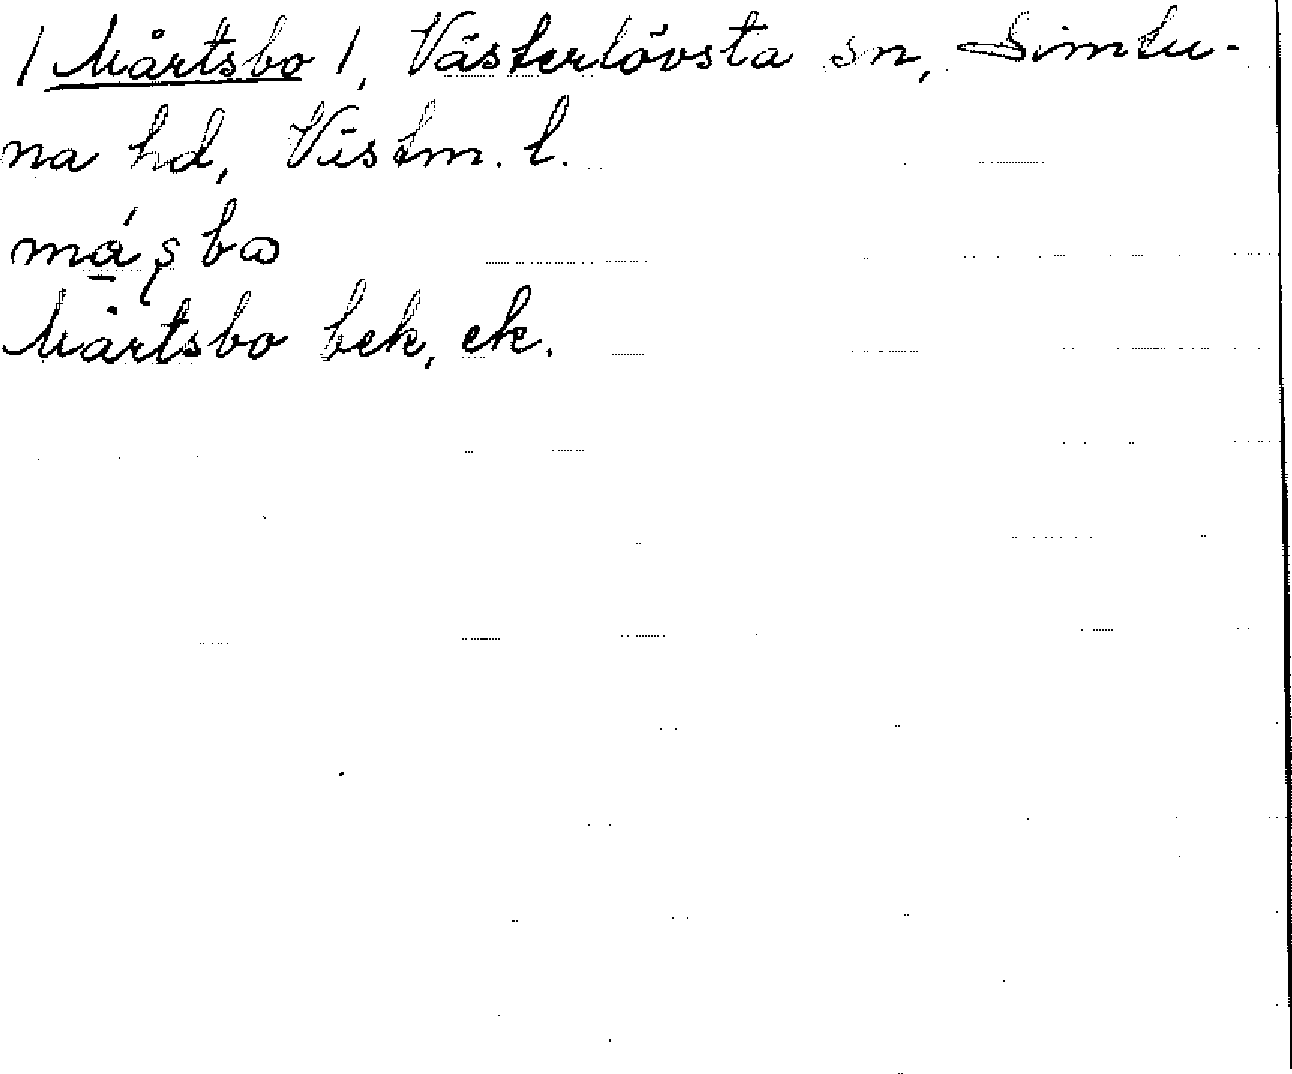 /Mårtsbo/, Västerlövsta sn, Simtu-
na hd, Västm. l.
má̱ʂbɷ
Mårtsbo bek, ek.